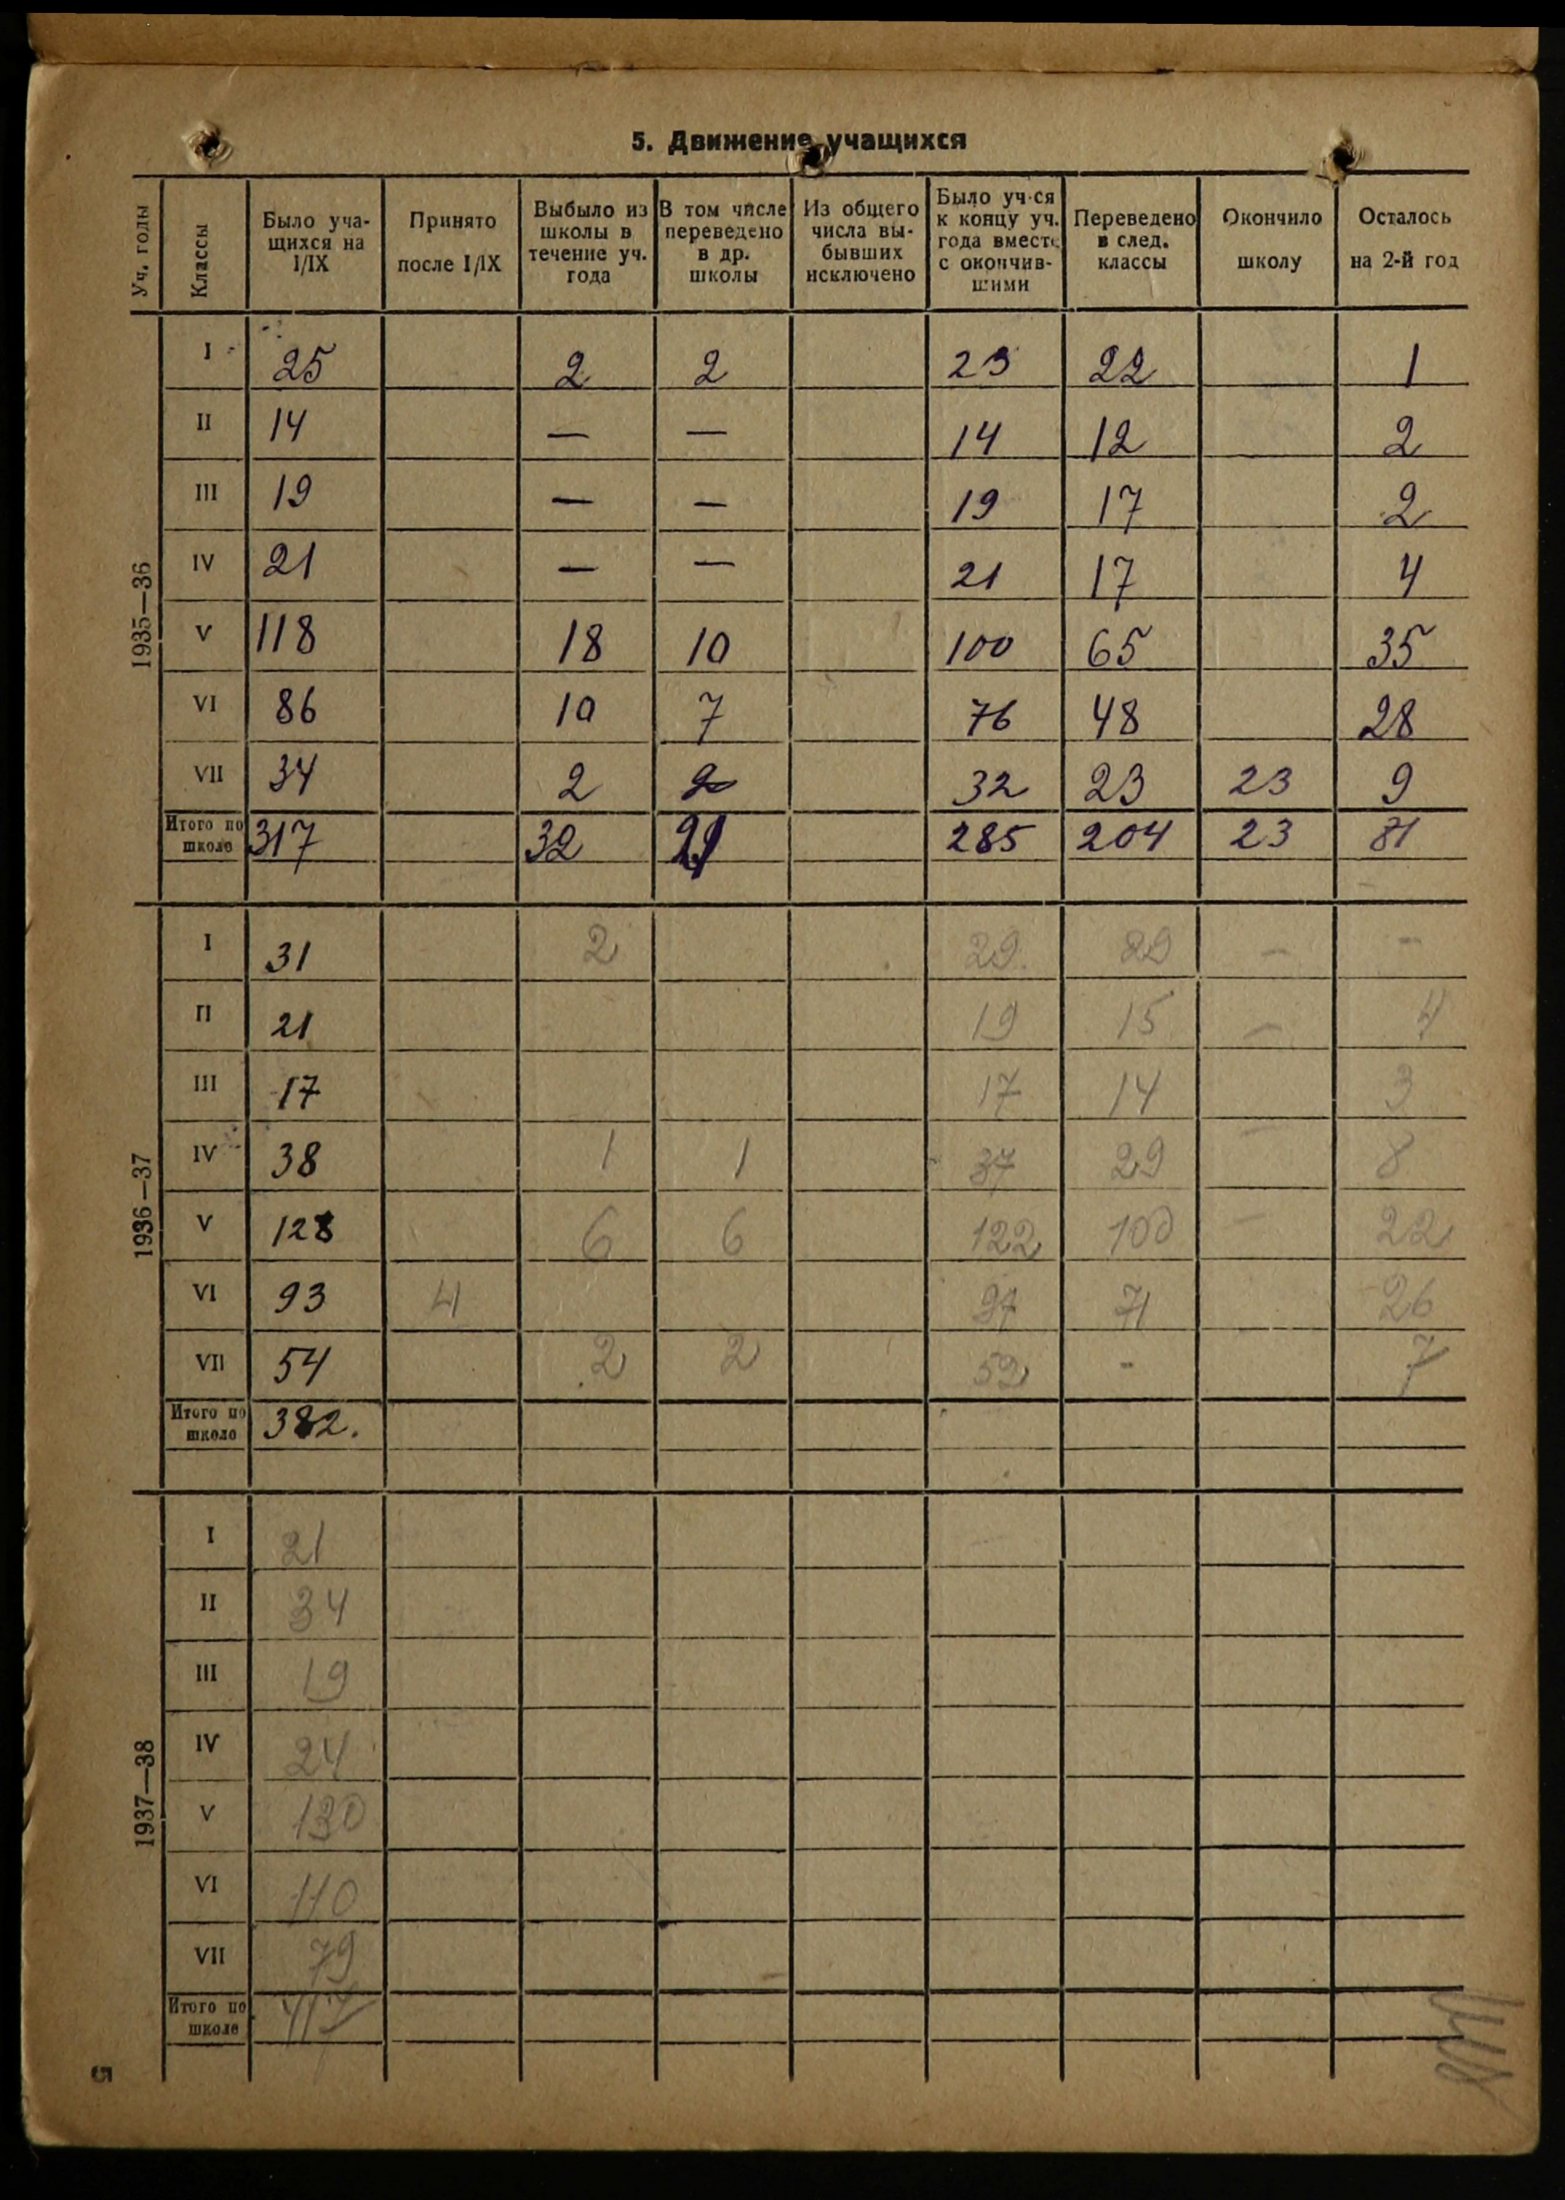 5. Движение учащихся
Уч. годы | Классы | Было учащихся на I/IX | Принято после I/IX | Выбыло из школы в течение уч. года | В том числе переведено в др. школы | Из общего числа выбывших исключено | Было уч-ся к концу уч. года вместе с окончившими | Переведено в след. классы | Окончило школу | Осталось на 2-й год
1935—36
I 25 2 2 23 22 1
II 14 — — 14 12 2
III 19 — — 19 17 2
IV 21 — — 21 17 4
V 118 18 10 100 65 35
VI 86 10 7 76 48 28
VII 34 2 2 32 23 23 9
Итого по школе 317 32 21 285 204 23 81
1936—37
I 31 2 29 29 — -
II 21 19 15 — 4
III 17 17 14 3
IV 38 1 1 37 29 — 8
V 128 6 6 122 100 — 22
VI 93 4 97 71 26
VII 54 2 2 52 - 7
Итого по школе 382.
1937—38
I 21
II 34
III 19
IV 24
V 130
VI 110
VII 79
Итого по школе 417
5